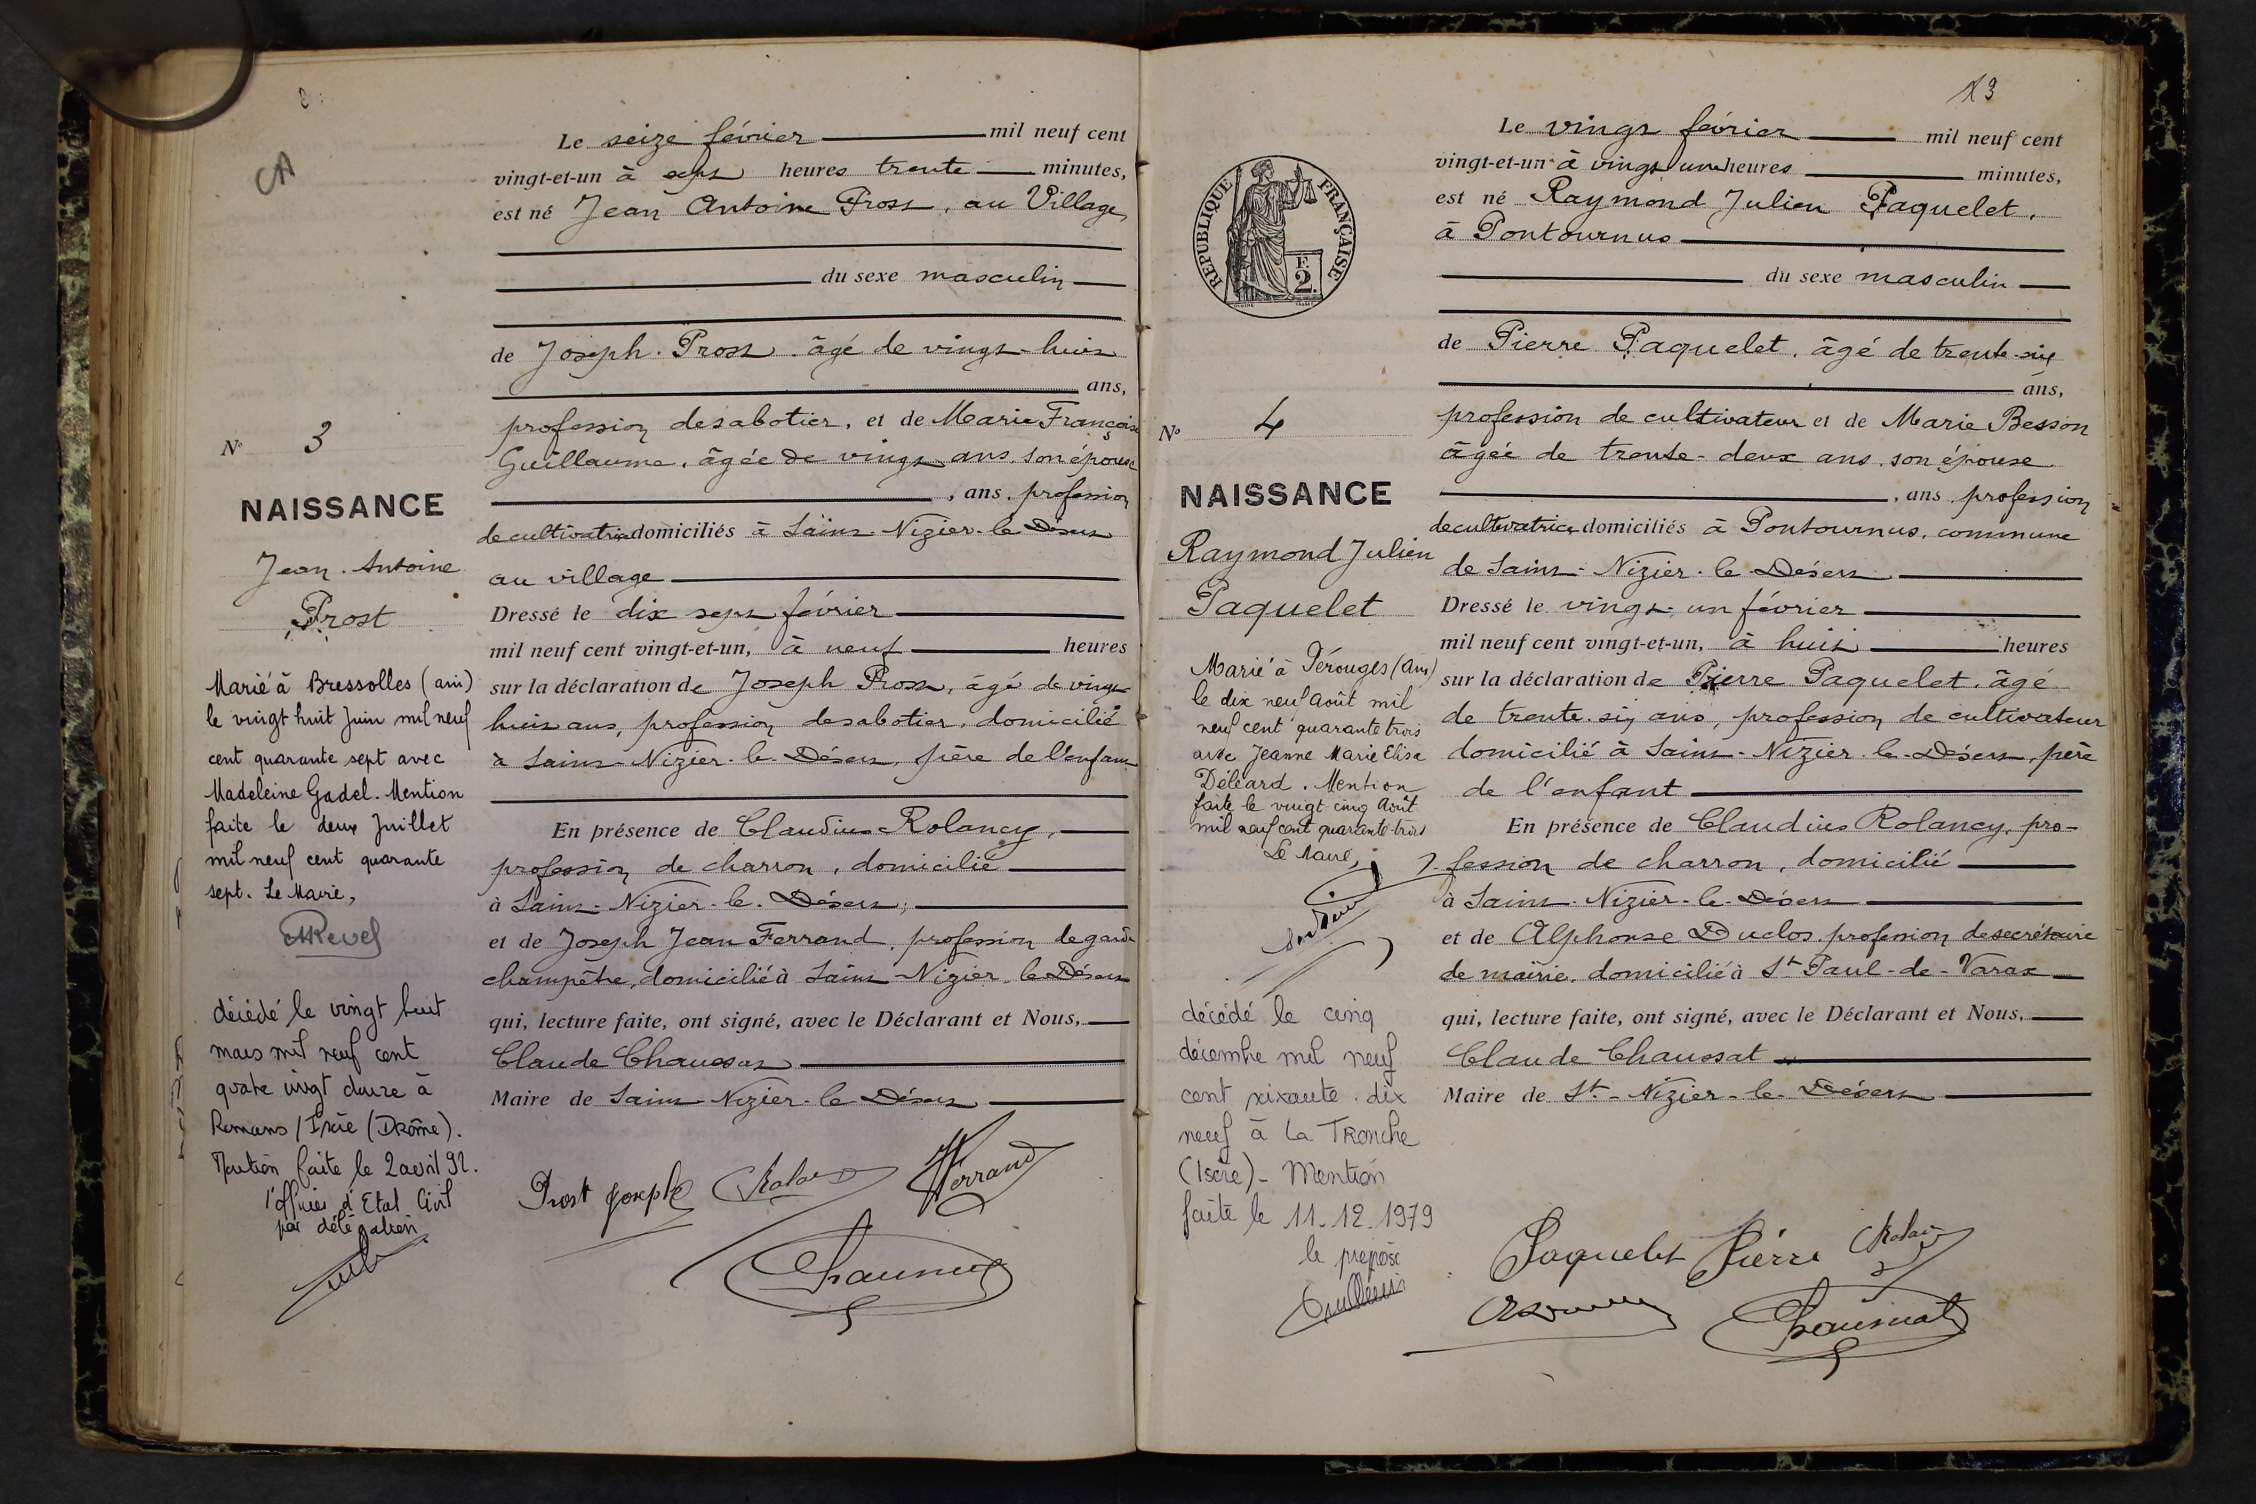 CA
N° 3
NAISSANCE
Jean Antoine
Prost
Marié à Bressolles (ain)
le vingt huit Juin mil neuf
cent quarante sept avec
Madeleine Gadel. Mention
faite le deux Juillet
mil neuf cent quarante
sept. Le Maire,
décédé le vingt huit
mars mil neuf cent
quatre vingt douze à
Romans / Isère (Drôme).
Mention faite le 2 avril 92.
l'officier d'Etat Civil
par délégation
Le seize février mil neuf cent
vingt-et-un à sept heures trente minutes,
est né Jean Antoine Prost, au Village,
du sexe masculin
de Joseph Prost âgé de vingt-huit
ans,
profession de sabotier, et de Marie Françoise
Guillaume, âgée de vingt ans, son épouse
, ans, profession
de cultivatrice domiciliés à Saint-Nizier-le Désert
au village
Dressé le dix sept février
mil neuf cent vingt-et-un, à neuf heures
sur la déclaration de Joseph Prost, âgé de vingt
huit ans, profession de sabotier, domicilié
à Saint-Nizier-le-Désert, père de l'enfant
En présence de Claudius Rolancy,
profession de charron, domicilié
à Saint-Nizier-le-Désert,
et de Joseph Jean Ferrand, profession de garde
champêtre, domicilié à Saint-Nizier-le Désert
qui, lecture faite, ont signé, avec le Déclarant et Nous,
Claude Chaussat
Maire de Saint-Nizier-le Désert
Prost Joseph
Ferrand
13
RÉPUBLIQUE FRANÇAISE
F.
2.
N° 4
NAISSANCE
Raymond Julien
Paquelet
Marié à Pérouges (Ain)
le dix neuf août mil
neuf cent quarante trois
avec Jeanne Marie Elisa
Déléard. Mention
faite le vingt cinq Août
mil neuf cent quarante-trois
Le Maire,
décédé le cinq
décembre mil neuf
cent soixante-dix
neuf à La Tronche
(Isère) - Mention
faite le 11-12-1979
le préposé
Le vingt février mil neuf cent
vingt-et-un à vingt une heures minutes,
est né Raymond Julien Paquelet,
à Pontournus
du sexe masculin
de Pierre Paquelet, âgé de trente-six
ans,
profession de cultivateur et de Marie Besson
âgée de trente-deux ans, son épouse
, ans, profession
de cultivatrice domiciliés à Pontournus, commune
de Saint-Nizier-le-Désert
Dressé le vingt-un février
mil neuf cent vingt-et-un, à huit heures
sur la déclaration de Pierre Paquelet, âgé
de trente-six ans, profession de cultivateur
domicilié à Saint-Nizier-le-Désert, père
de l'enfant
En présence de Claudius Rolancy, pro-
fession de charron, domicilié
à Saint-Nizier-le-Désert
et de Alphonse Duclos, profession de secrétaire
de mairie, domicilié à St Paul-de-Varax
qui, lecture faite, ont signé, avec le Déclarant et Nous,
Claude Chaussat
Maire de St-Nizier-le-Désert
Paquelet Pierre
Chaussat